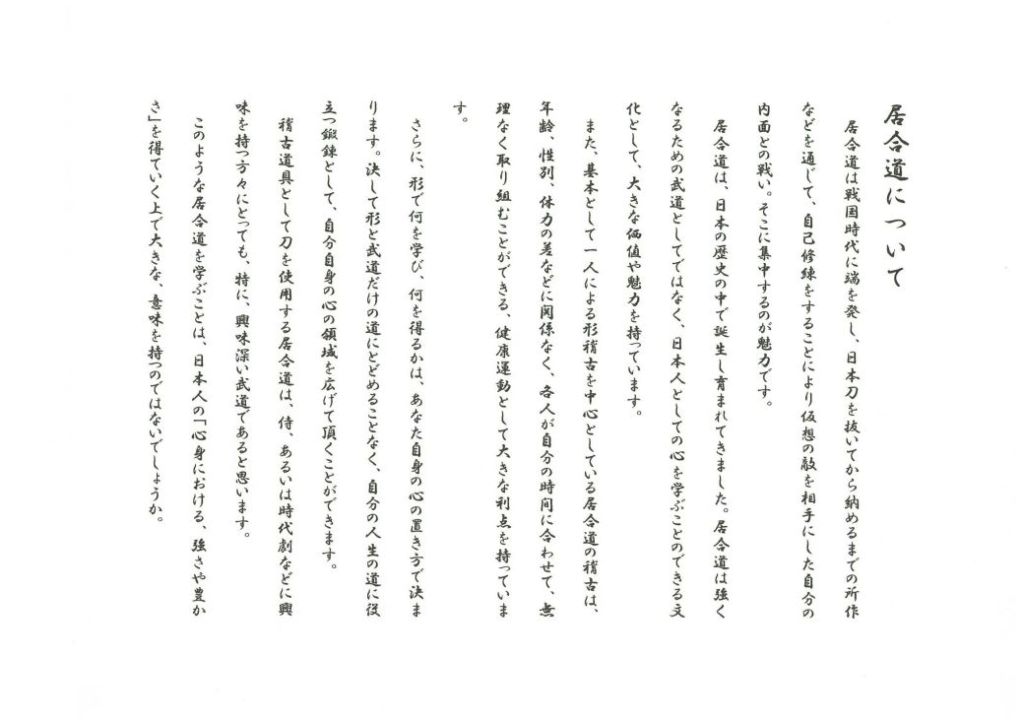 居合道について
居合道は戦国時代に端を発し、日本刀を抜いてから納めるまでの所作
などを通じて、自己修練をすることにより仮想の敵を相手にした自分の
内面との戦い。そこに集中するのが魅力です。
居合道は、日本の歴史の中で誕生し育まれてきました。居合道は強く
なるための武道としてではなく、日本人としての心を学ぶことのできる文
化として、大きな価値や魅力を持っています。
また、基本として一人による形稽古を中心としている居合道の稽古は、
年齢、性別、体力の差などに関係なく、各人が自分の時間に合わせて、無
理なく取り組むことができる、健康運動として大きな利点を持っていま
す。
さらに、形で何を学び、何を得るかは、あなた自身の心の置き方で決ま
ります。決して形と武道だけの道にとどめることなく、自分の人生の道に役
立つ鍛錬として、自分自身の心の領域を広げて頂くことができます。
稽古道具として刀を使用する居合道は、侍、あるいは時代劇などに興
味を持つ方々にとっても、特に、興味深い武道であると思います。
このような居合道を学ぶことは、日本人の「心身における、強さや豊か
さ」を得ていく上で大きな、意味を持つのではないでしょうか。